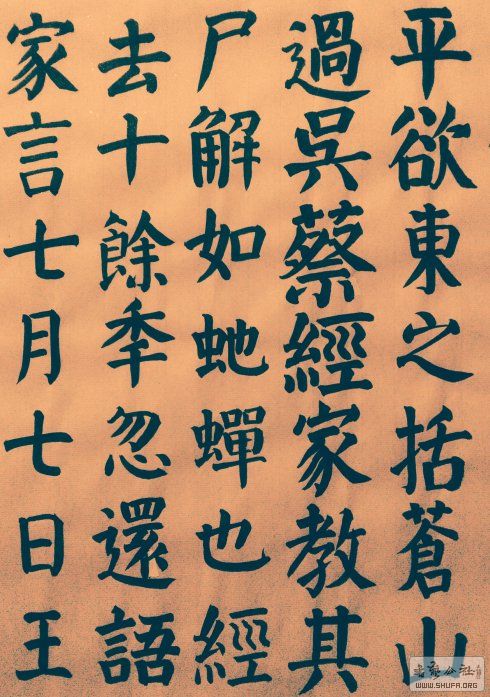 平欲東之括蒼山
過吳蔡經家教其
尸解如虵蟬也經
去十餘季忽還語
家言七月七日王
WWW.SHUFA.ORG